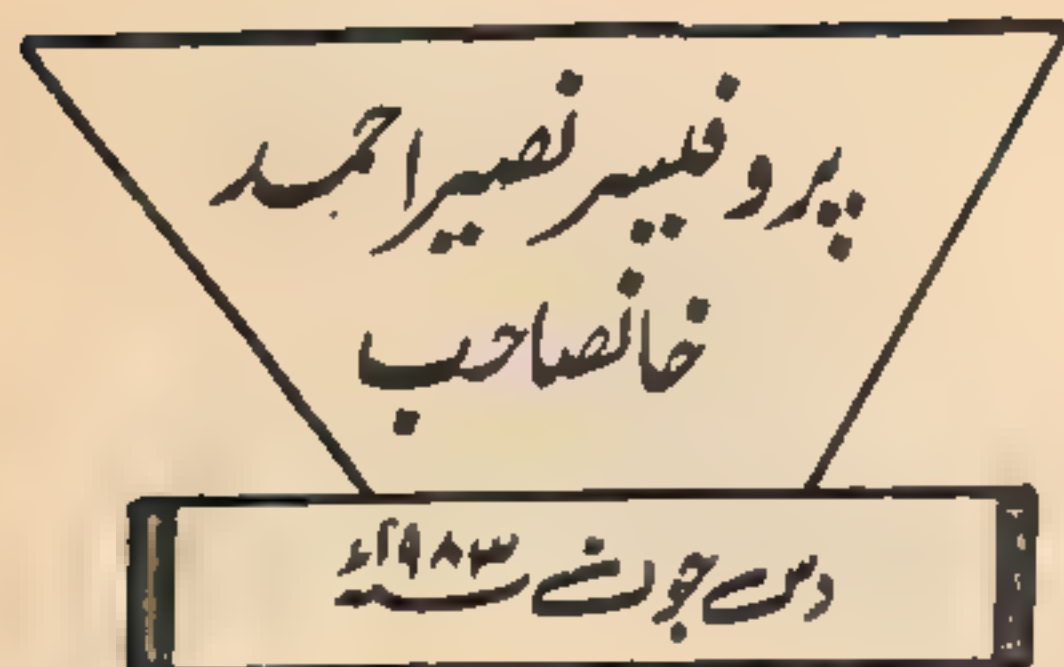 پروفیسر نصیر احمد
خانصاحب
دس جون ۱۹۸۳ء